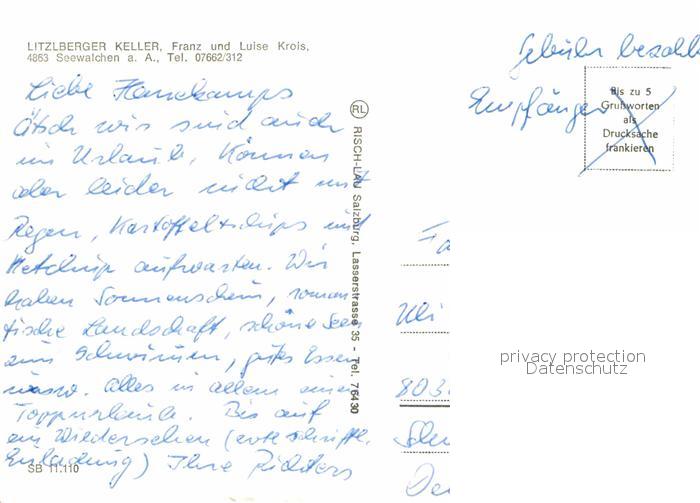 LITZLBERGER KELLER, Franz und Luise Krois,
4863 Seewalchen a. A., Tel. 07662/312
Liebe Hanekamps
Ätsch wir sind auch
im Urlaub, können
aber leider nicht mit
Regen, Kartoffelchips und
Ketchup aufwarten. Wir
haben Sonnenschein, roman-
tische Landschaft, schöne Seen
zum Schwimmen, gutes Essen
usw. alles in allem einen
Toppurlaub. Bis auf
ein Wiedersehen (erte schriftl.
Einladung) Ihre Richters
SB 11.110
RL RISCH-LAU Salzburg, Lasserstrasse 35 - Tel. 764 30
Gebühr bezahl
Empfänger
Bis zu 5
Grußworten
als
Drucksache
frankieren
Fa
Uli
803
Schu
De
privacy protection
Datenschutz